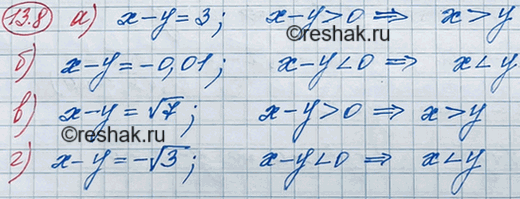 13.8 а) x-y=3; x-y>0 ⇒ x>y
©reshak.ru
б) x-y=-0,01; x-y<0 ⇒ x<y
в) x-y=√7; x-y>0 ⇒ x>y
©reshak.ru
г) x-y=-√3; x-y<0 ⇒ x<y